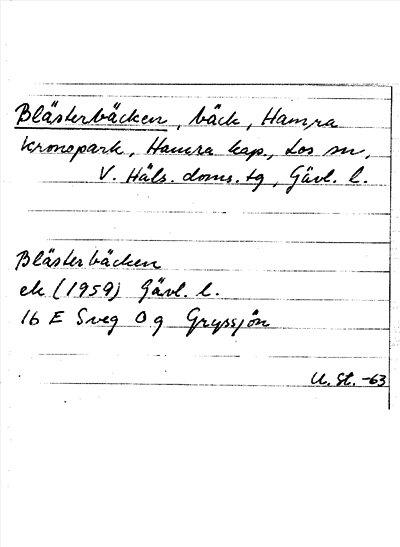 Blästerbäcken, bäck, Hamra
kronopark, Hamra kap., Los sn,
V. Häls. doms. tg, Gävl. l.
Blästerbäcken
ek (1959) Gävl. l.
16 E Sveg 0 g Gryssjön
U. St. -63